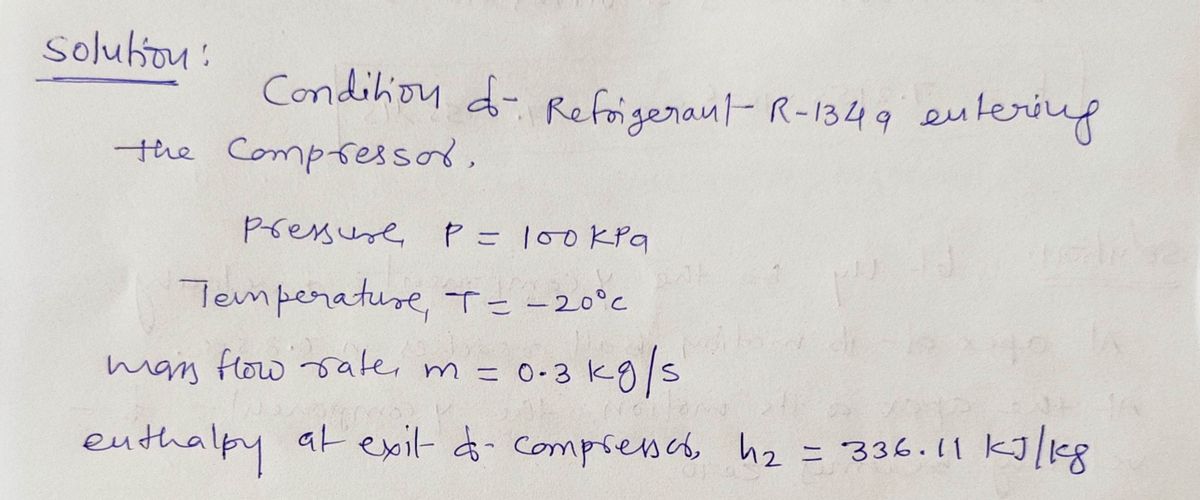 Solution:
Condition of Refrigerant R-134a entering
the Compressor.
Pressure, P = 100 KPa
Temperature, T = -20°C
mass flow rate, m = 0.3 kg/s
enthalpy at exit of compressor, h2 = 336.11 KJ/kg